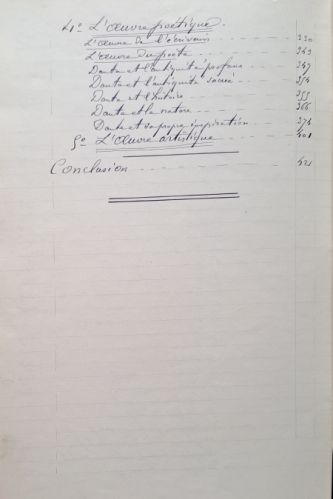 4° L'œuvre poétique.
L'œuvre de l'écrivain - - - 230
L'œuvre du poète - - - 243
Dante et l'antiquité profane - - - 247
Dante et l'antiquité sacrée - - -
Dante et l'histoire - - -
Dante et la nature - - -
Dante et sa propre inspiration - - -
5° L'Œuvre artistique - - - 401
Conclusion - - - 421